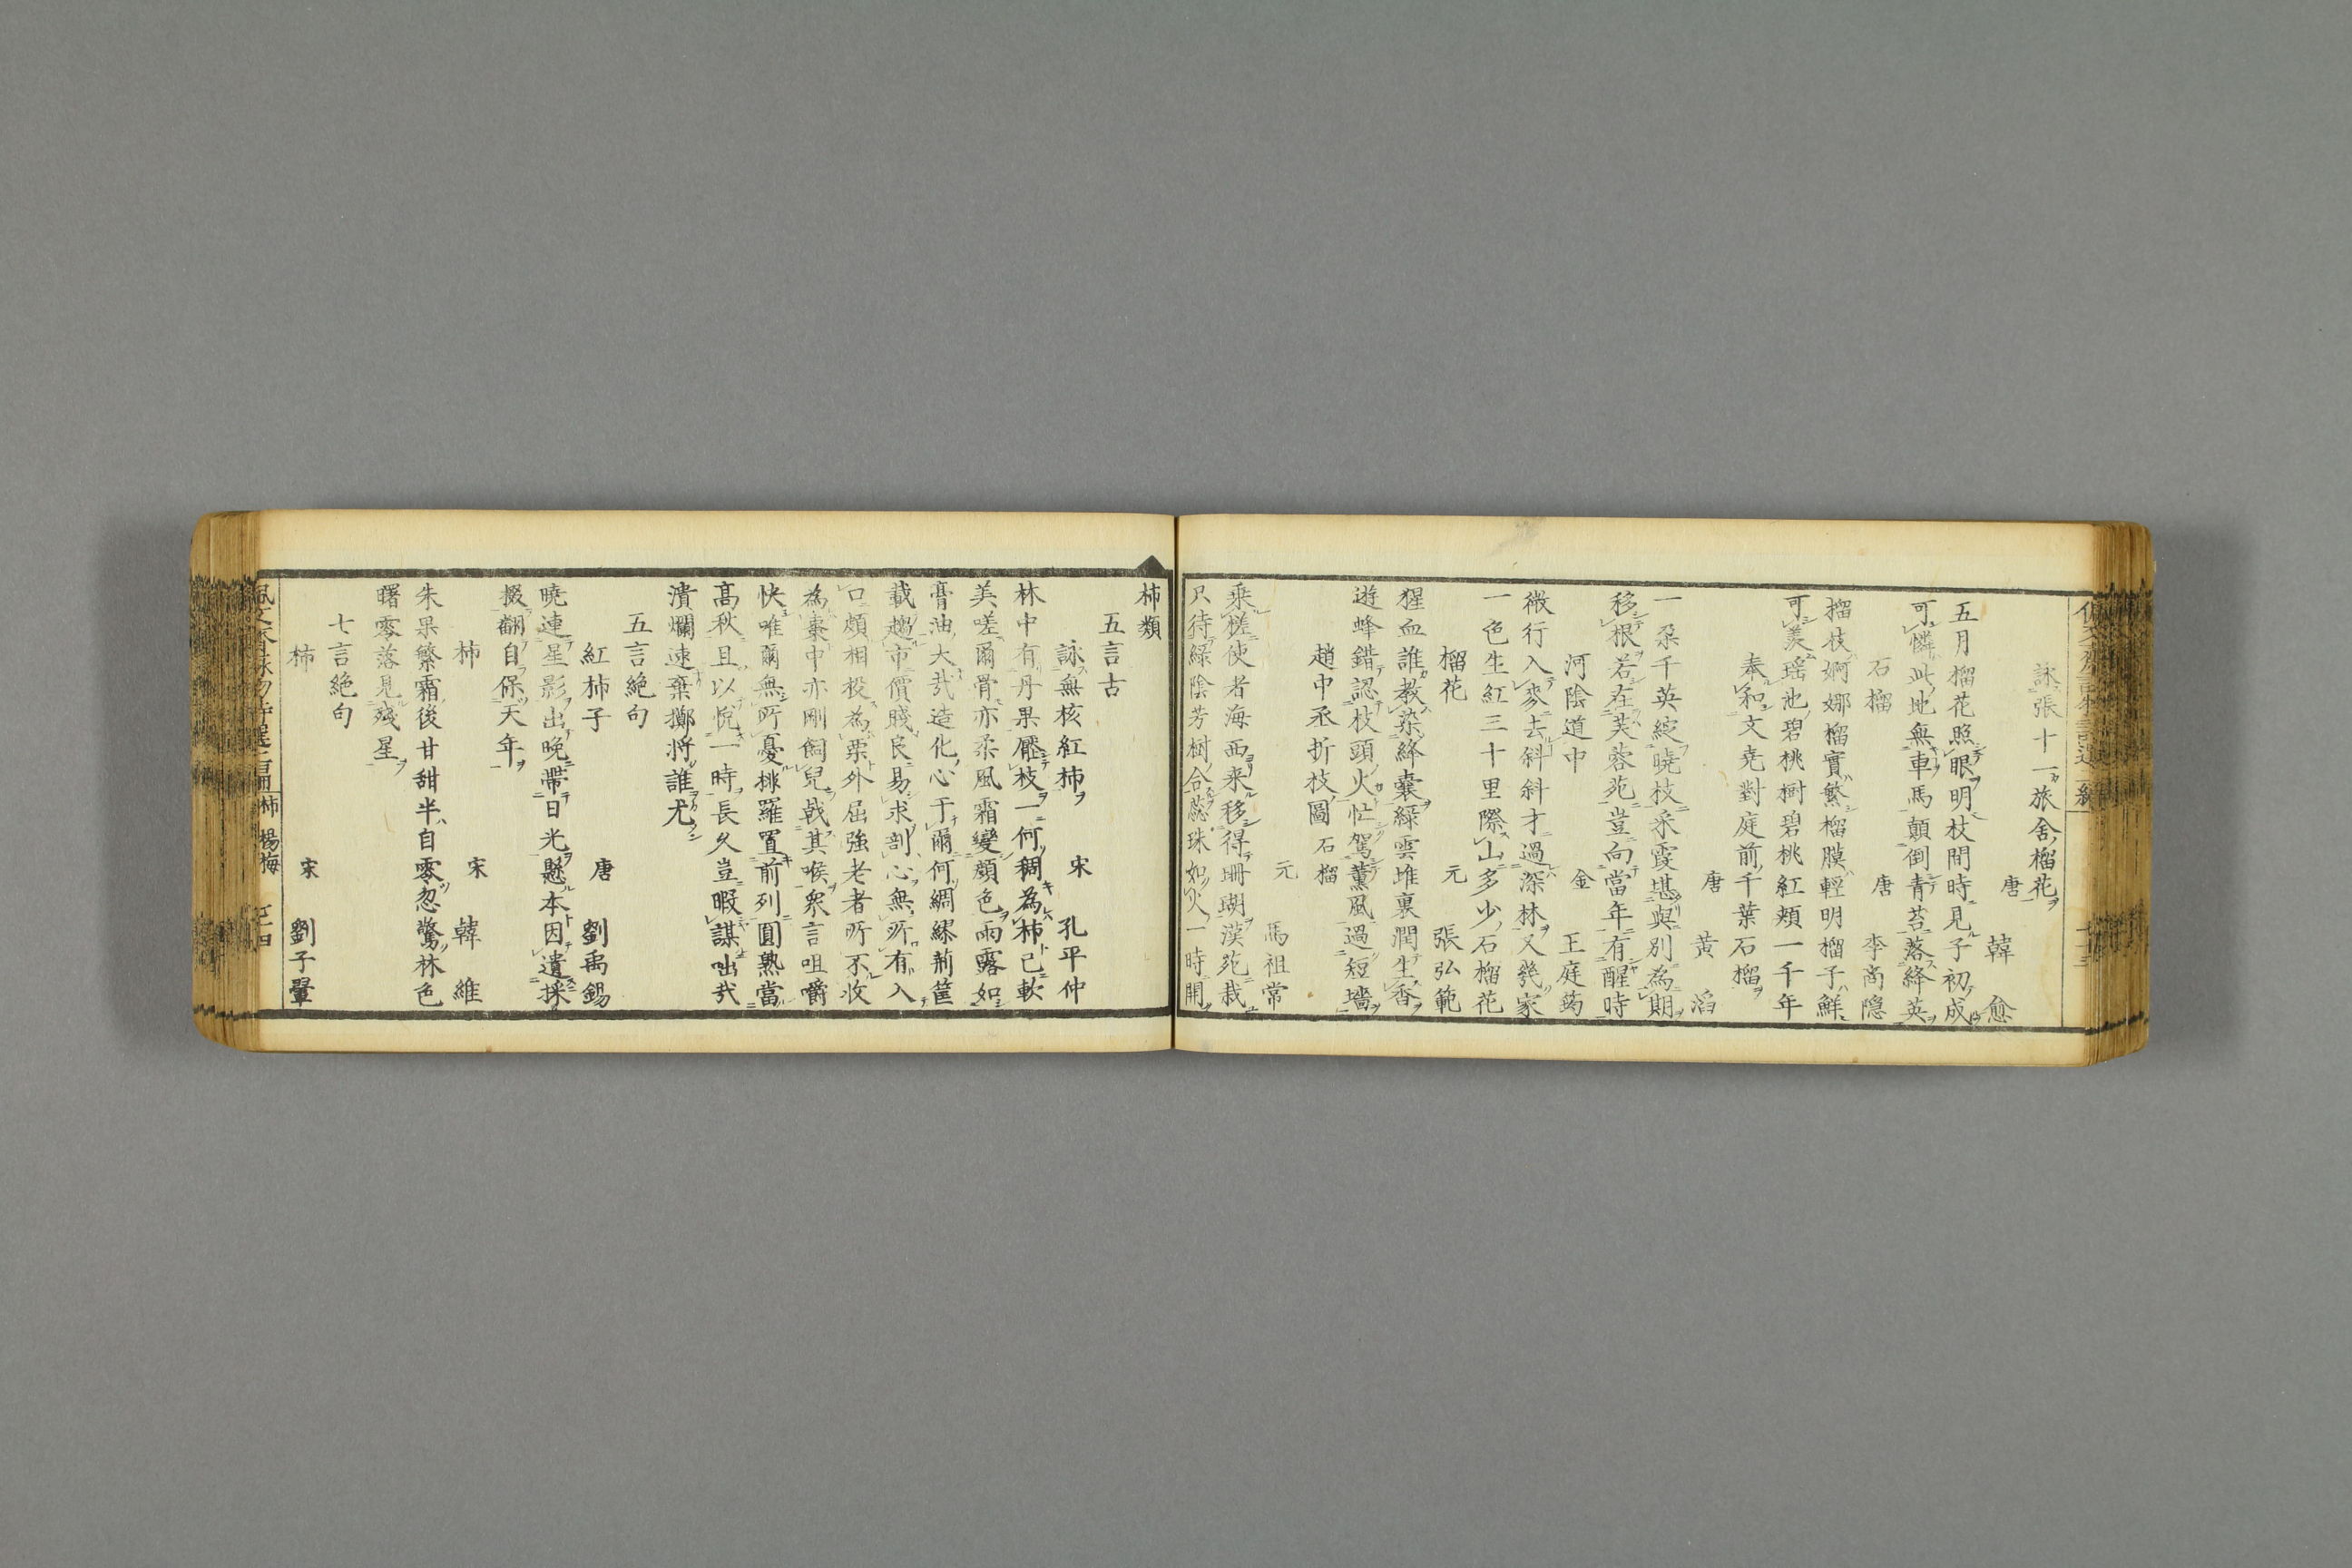 詠張十一旅舎榴花
唐 韓愈
五月榴花照眼明枝間時見子初成
可憐此地無車馬顛倒青苔落絳英
石榴 唐 李商隠
榴枝婀娜榴實繁榴膜輕明榴子鮮
可羨瑶池碧桃樹碧桃紅頰一千年
奉和文尭對庭前千葉石榴
唐 黄滔
一朶千英綻曉枝釆霞堪與別為期
移根若在芙蓉苑豈向當年有醒時
河陰道中 金 王庭筠
微行入麥去斜斜才過深林又幾家
一色生紅三十里際山多少石榴花
榴花 元 張弘範
猩血誰教染絳嚢緑雲堆裏潤生香
遊蜂錯認枝頭火忙駕薫風過短墻
趙中丞折枝圖 石榴
元 馬祖常
乗槎使者海西来移得珊瑚漢苑栽
只待緑陰芳樹合蕊珠如火一時開
柿類
五言古
詠無核紅柿 宋 孔平仲
林中有丹果壓枝一何稠為柿已軟
美嗟爾骨亦柔風霜變顔色雨露如
膏油大哉造化心于爾何綢繆荊筐
載趨市價賤良易求剖心無所有入
口頗相投為栗外屈強老者所不收
為棗中亦剛飼兒戟其喉衆言咀嚼
快唯爾無所憂排羅置前列圓熟當
高秋且以悦一時長久豈暇謀咄哉
潰爛速棄擲将誰尤
五言絶句
紅柿子 唐 劉禹錫
曉連星影出晩帶日光懸本因遺採
掇翻自保天年
柿 宋 韓維
朱果繁霜後甘甜半自零忽驚林色
曙零落見殘星
七言絶句
柿 宋 劉子翬
柿 楊梅